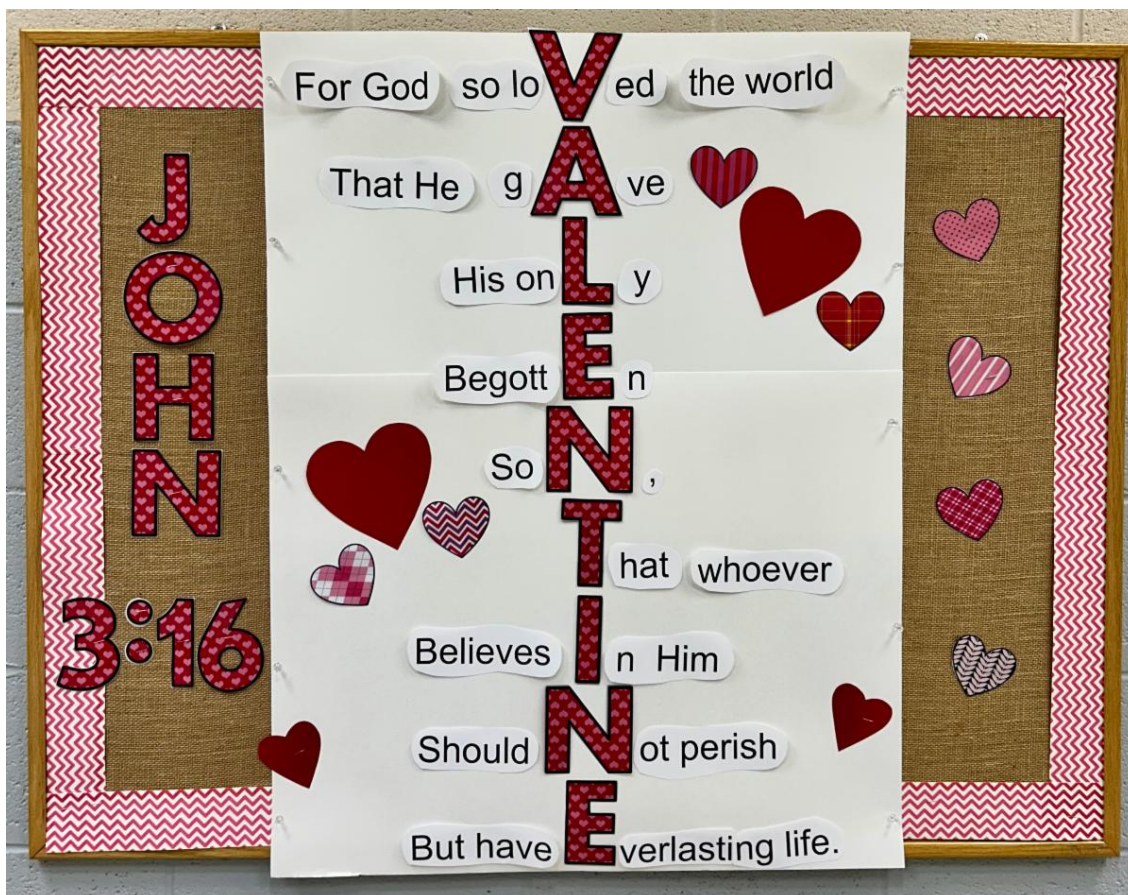 JOHN
3:16
For God so loVed the world
That He gAve
His onLy
BegottEn
SoN,
That whoever
Believes In Him
Should Not perish
But have Everlasting life.